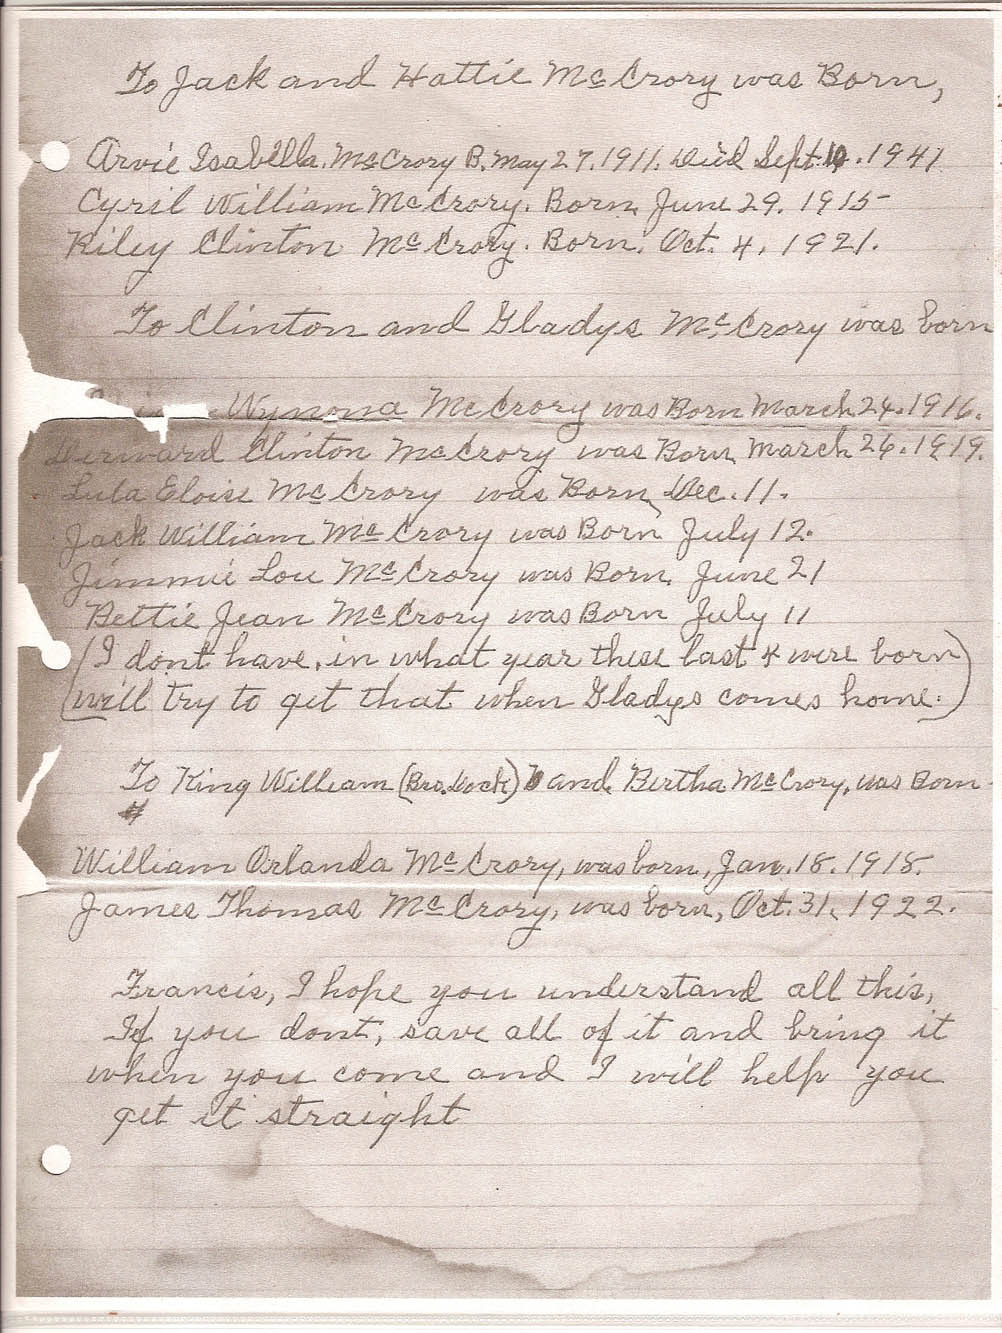 To Jack and Hattie McCrory was Born,
Arvie Isabella. McCrory B. May 27. 1911. Died Sept. . 1941
Cyril William McCrory. Born. June 29. 1915-
Riley Clinton McCrory. Born. Oct. 4. 1921.
To Clinton and Gladys McCrory was born
Wynona McCrory was Born March 24. 1916.
Derward Clinton McCrory was Born March 26. 1919.
Lula Eloise McCrory was Born, Dec. 11.
Jack William McCrory was Born July 12.
Jimmie Lou McCrory was Born. June 21
Bettie Jean McCrory was Born July 11
(I dont have, in what year these last 4 were born
will try to get that when Gladys comes home.)
To King William (Bro. Dock) and Bertha McCrory, was Born-
William Orlanda McCrory, was born, Jan. 18. 1918.
James Thomas McCrory, was born, Oct. 31, 1922.
Francis, I hope you understand all this,
If you dont, save all of it and bring it
when you come and I will help you
get it straight